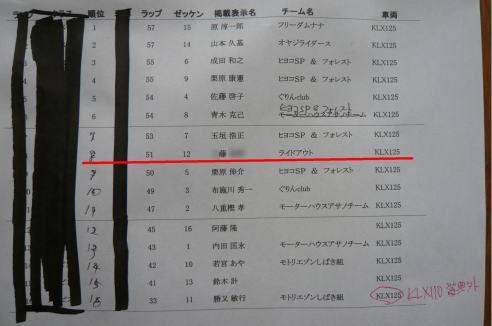 順位 ラップ ゼッケン 掲載表示名 チーム名 車両
1 57 15 原 淳一郎 フリーダムナナ KLX125
2 57 14 山本 久基 オヤジライダース KLX125
3 55 6 成田 和之 ヒヨコSP & フォレスト KLX125
4 55 9 栗原 康憲 ヒヨコSP & フォレスト KLX125
5 54 4 佐藤 啓子 ぐりんclub KLX125
ヒヨコSP&フォレスト
6 54 8 青木 克己 モーターハウスアサノチーム KLX125
7 53 7 玉垣 浩正 ヒヨコSP & フォレスト KLX125
8 51 12 藤 ライドアウト KLX125
9 50 5 栗原 伸介 ヒヨコSP & フォレスト KLX125
10 49 3 布施川 秀一 ぐりんclub KLX125
11 47 2 八重樫 孝 モーターハウスアサノチーム KLX125
12 45 16 阿藤 隆 KLX125
13 43 1 内田 匡永 モーターハウスアサノチーム KLX125
14 42 10 若宮 あや モトリエゾンしばき組 KLX125
15 41 13 鈴木 計 KLX125
16 33 11 勝又 敏行 モトリエゾンしばき組 KLX125 KLX110 賞典外